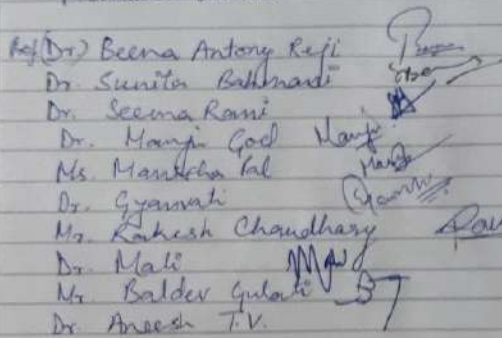 Prof (Dr) Beena Antony Reji
Dr. Sunita
Dr. Seema Rani
Dr. Manju God Manju
Ms. Manisha Pal
Dr. Gyanvati
Mr. Rakesh Chaudhary
Dr. Mali
Mr. Baldev Gulati
Dr. Aneesh T.V.